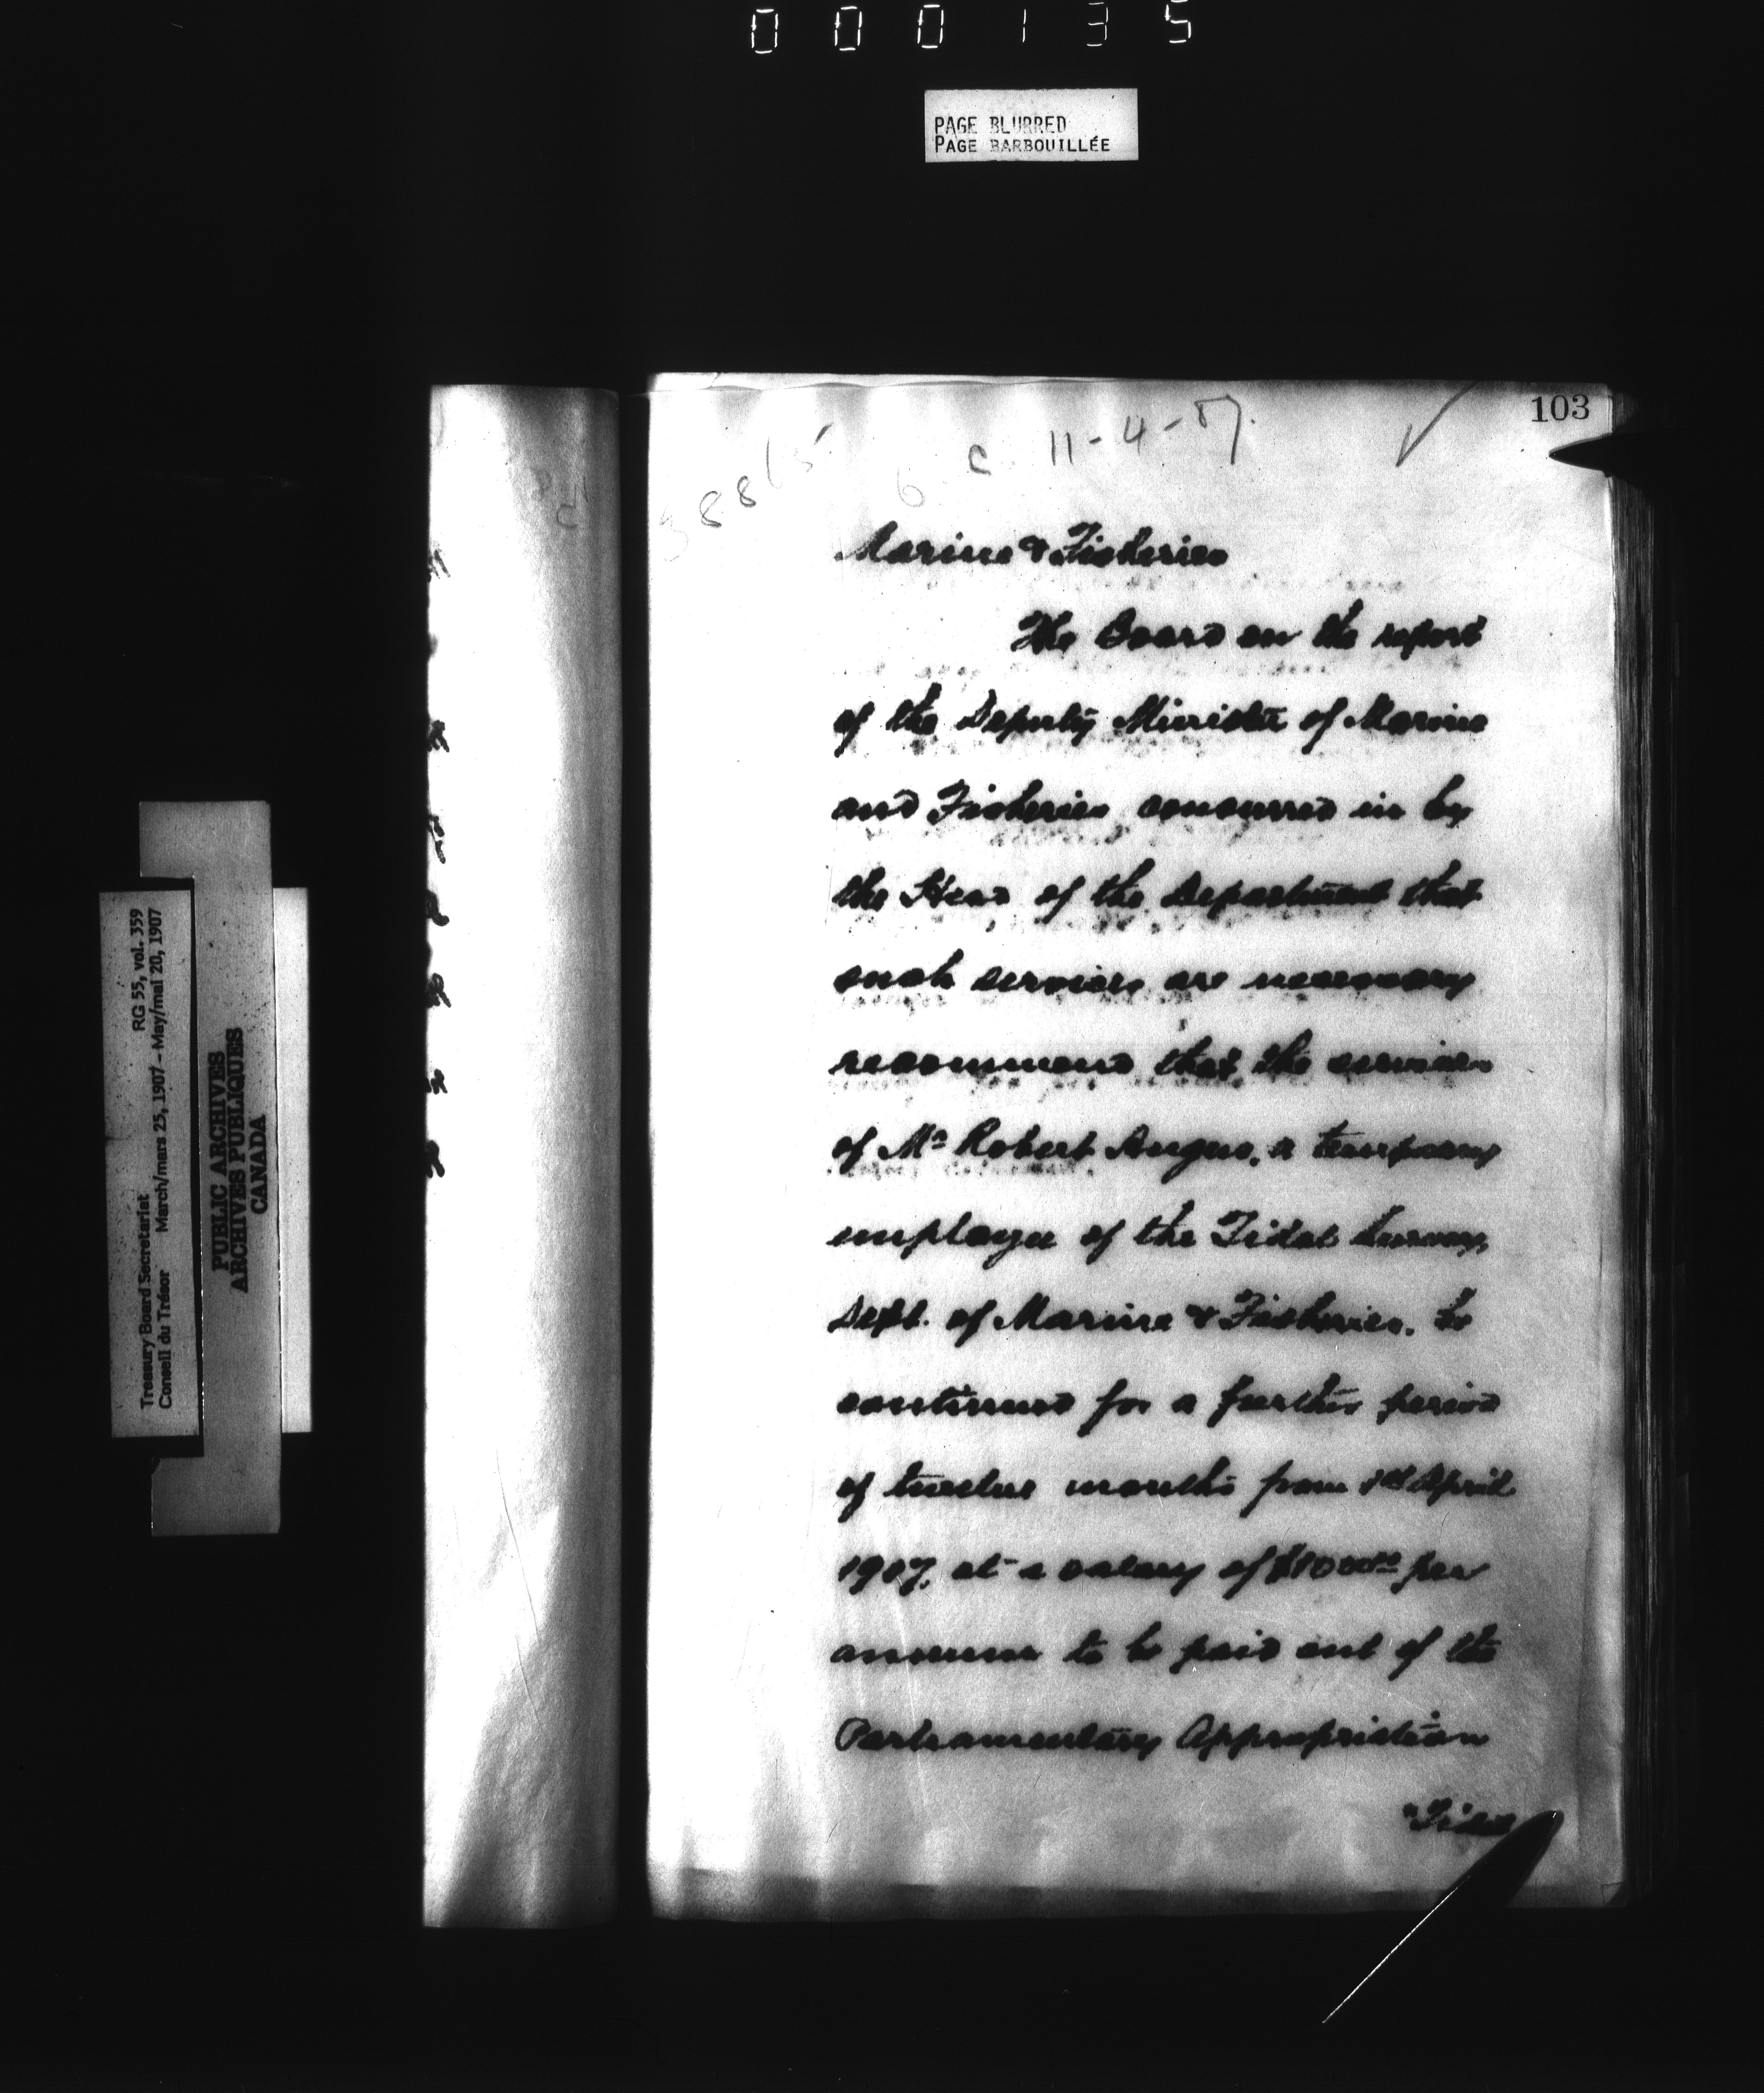 000135
PAGE BLURRED
PAGE BARBOUILLÉE
103
38815
6 C 11-4-07.
Marine & Fisheries
The Board on the report
of the Deputy Minister of Marine
and Fisheries concurred in by
the Head of the Department that
such services are necessary
recommend that the services
of Mr Robert Angus, a temporary
employee of the Tidal Survey,
Dept. of Marine & Fisheries, be
continued for a further period
of twelve months from 1st April
1907, at a salary of $1000.00 per
annum to be paid out of the
Parliamentary Appropriation
"Tidal
Treasury Board Secretariat RG 55, vol. 359
Conseil du Trésor March/mars 25, 1907 – May/mai 20, 1907
PUBLIC ARCHIVES
ARCHIVES PUBLIQUES
CANADA